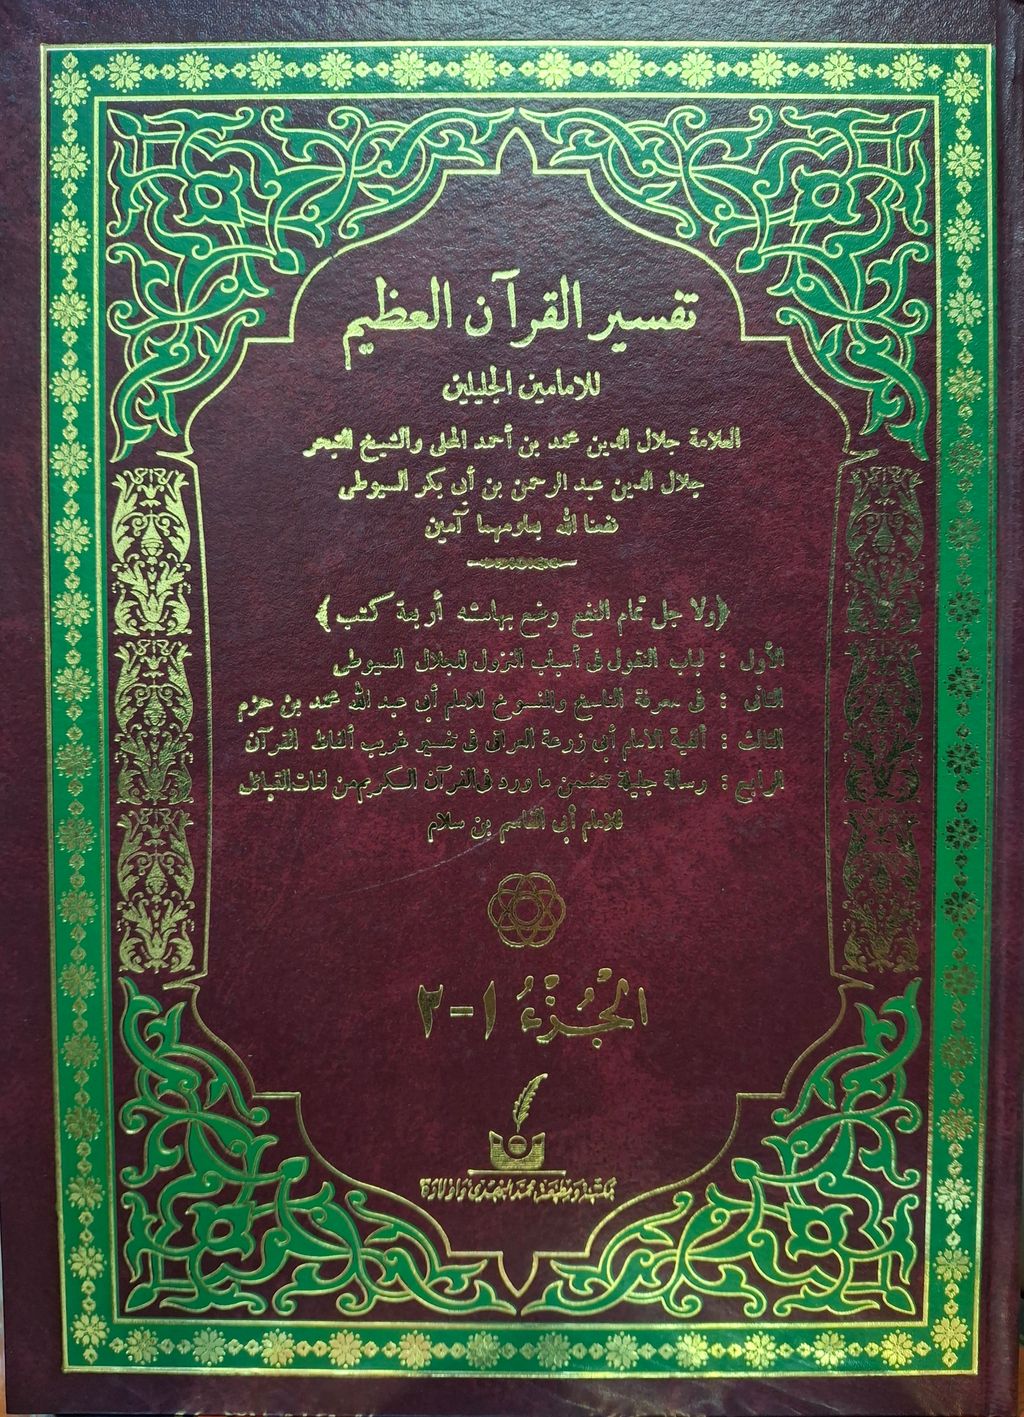 تفسير القرآن العظيم
للامامين الجليلين
العلامة جلال الدين محمد بن أحمد المحلى والشيخ المتبحر
جلال الدين عبد الرحمن بن أبى بكر السيوطى
نفعنا الله بعلومهما آمين
﴿ولاجل تمام النفع وضع بهامشه أربعة كتب﴾
الأول : لباب النقول فى أسباب النزول للجلال السيوطى
الثانى : فى معرفة الناسخ والمنسوخ للامام أبى عبد الله محمد بن حزم
الثالث : ألفية الامام أبى زرعة العراقى فى تفسير غريب ألفاظ القرآن
الرابع : رسالة جليلة تتضمن ما ورد فى القرآن الكريم من لغات القبائل
للامام أبى القاسم بن سلام
الجُزْءُ ١-٢
مكتبة ومطبعة محمد النهدى وأولاده